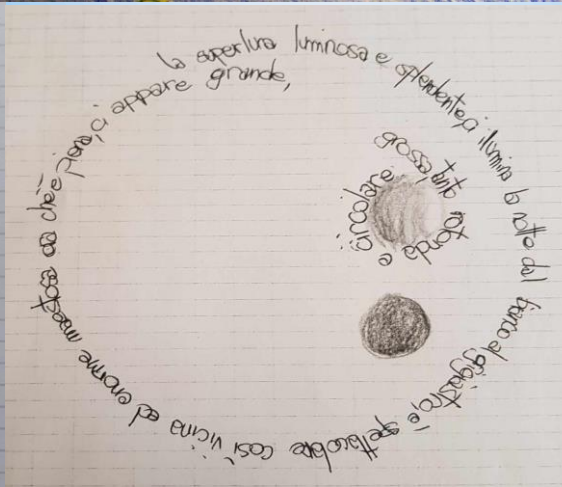 la superluna luminosa e splendente,ci illumina la notte dal bianco al giallastro,è spettacolare così vicina ed enorme maestosa ora che è piena,ci appare grande,
grossa,tanto rotonda e circolare